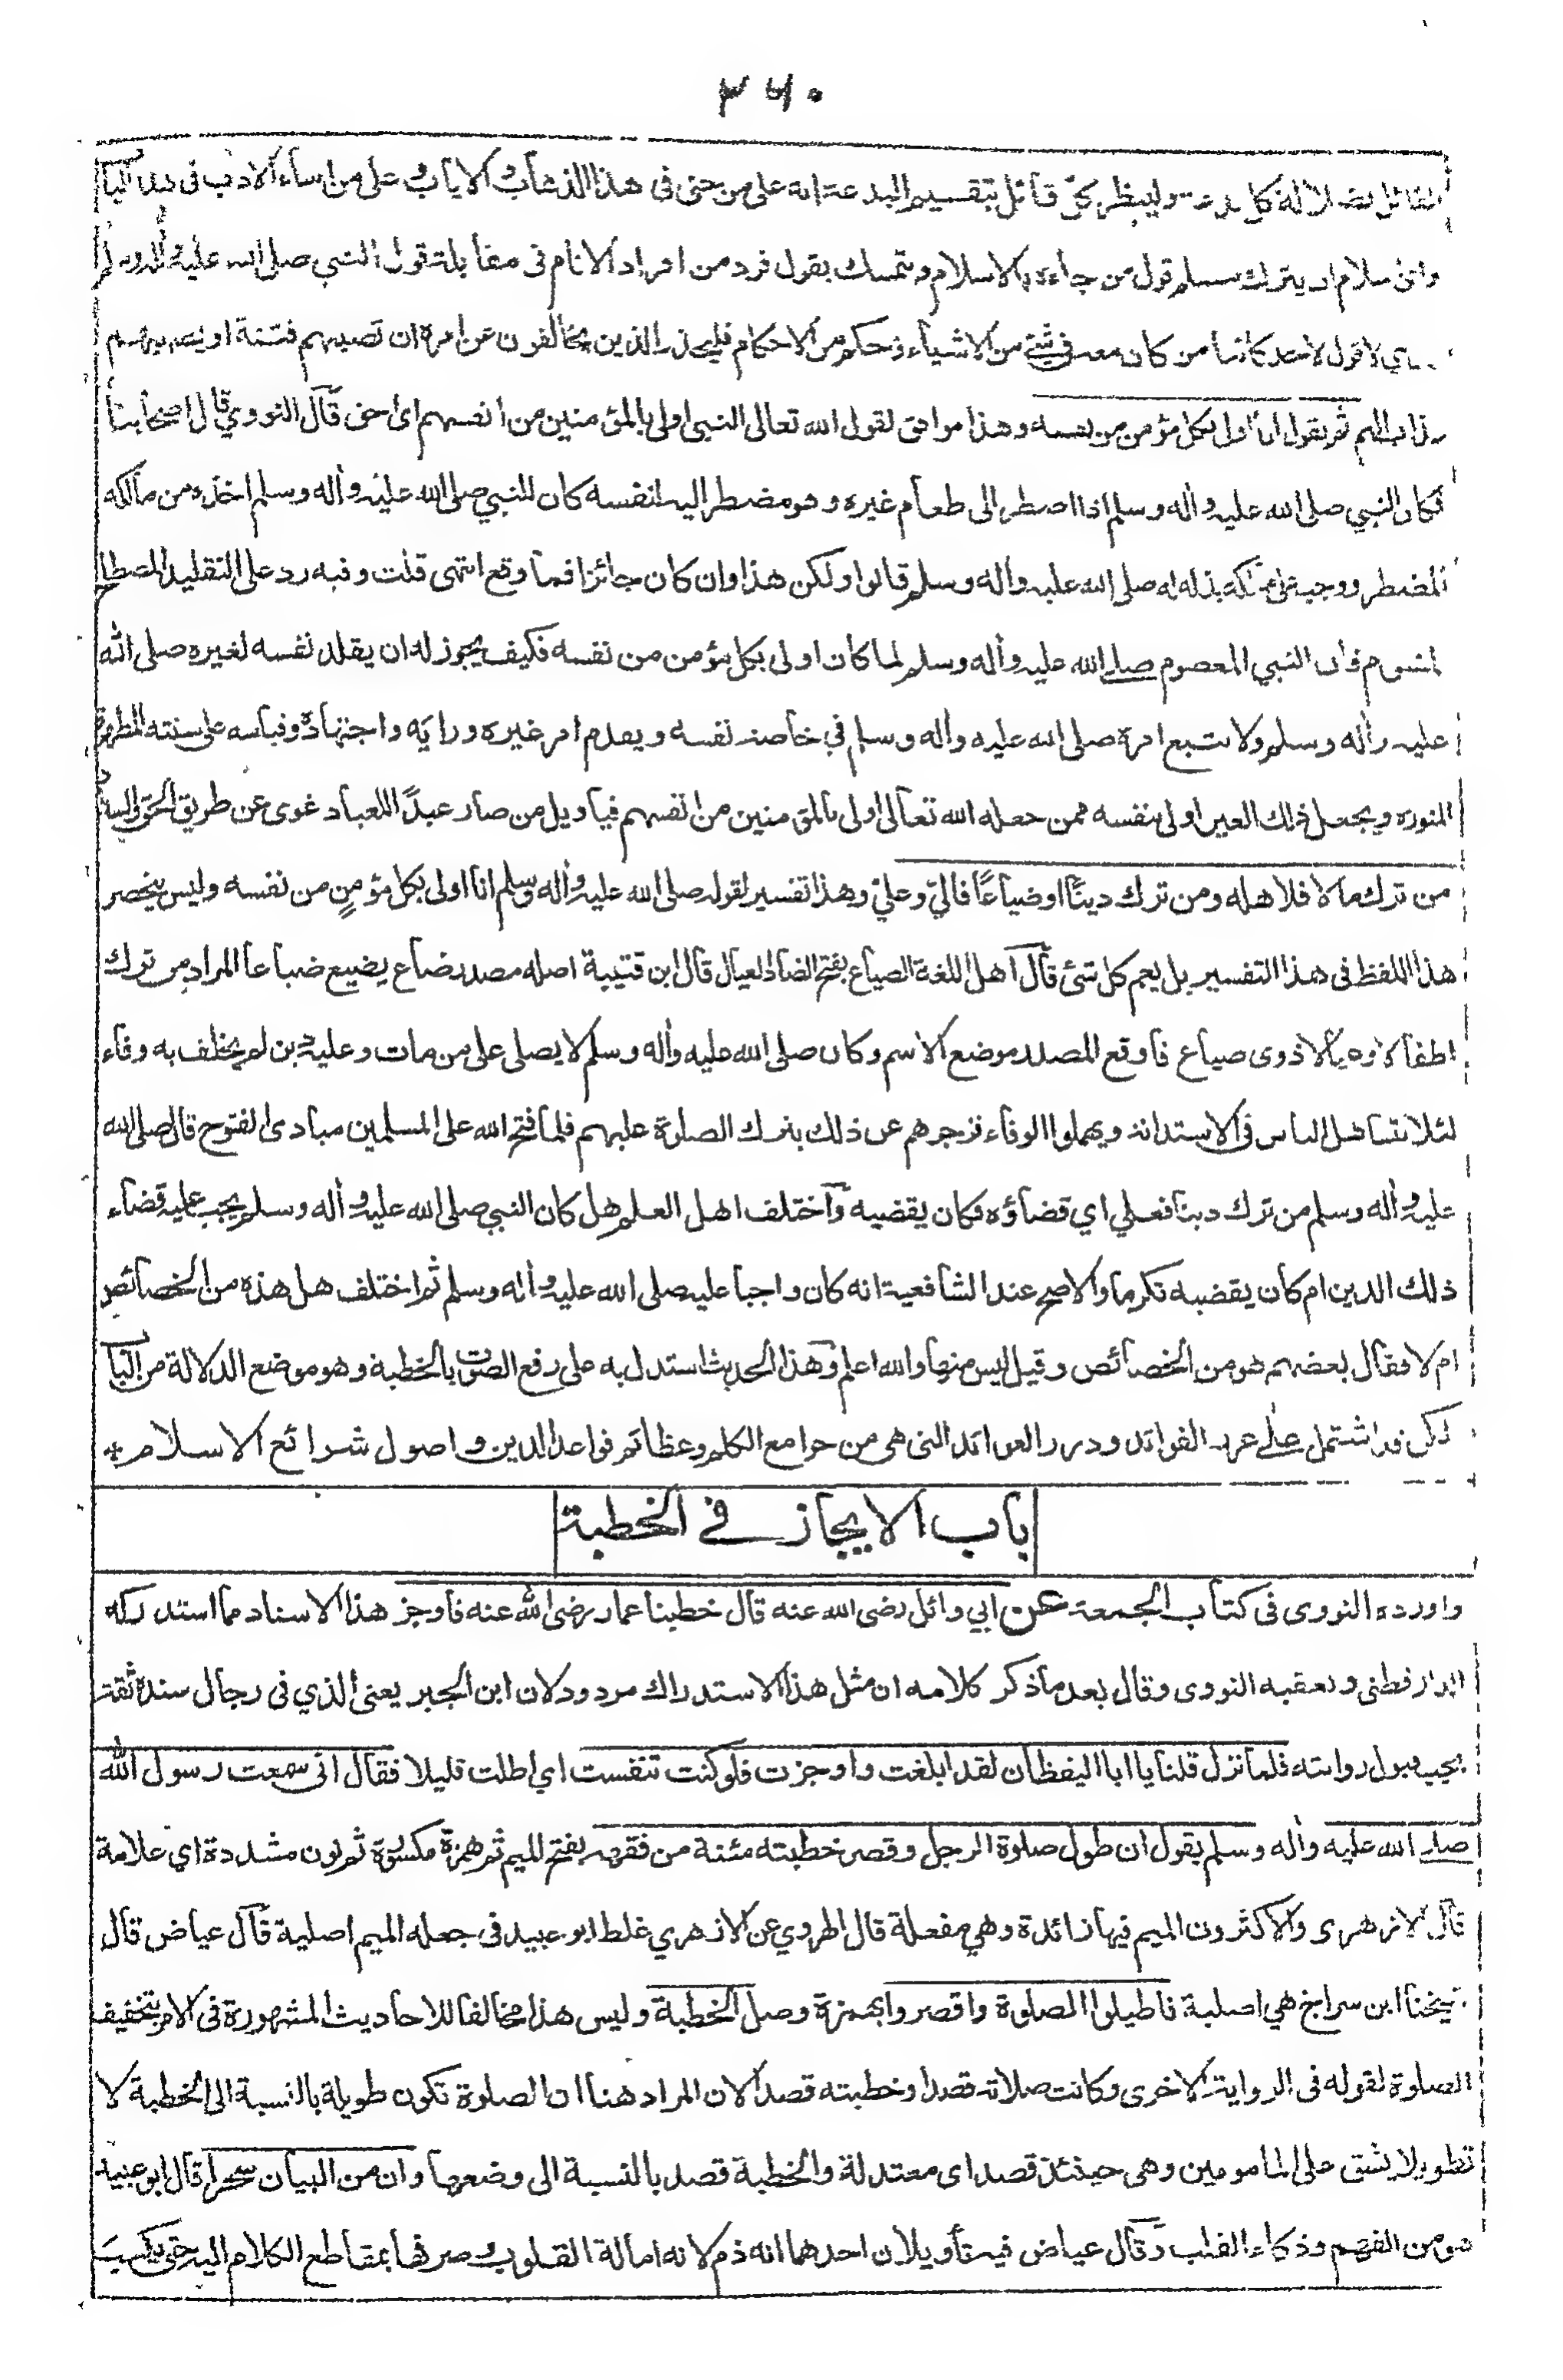 ٣٦٠
القائل بضلالة كل بدعة ولينظر بحق قائل بتقسيم البدعة انه على من جنى في هذا الذهاب والاياب وعلى من اساء الادب في هذا الباب
واي اسلام ان يترك مسلم قول من جاءه بالاسلام ويتمسك بقول فرد من افراد الانام في مقابلة قول النبي صلى الله عليه واله وسلم
لا قول لاحد كائنا من كان معه في شئ من الاشياء وحكم من الاحكام فليحذر الذين يخالفون عن امره ان تصيبهم فتنة او يصيبهم
عذاب اليم ثم يقول انا اولى بكل مؤمن من نفسه وهذا موافق لقول الله تعالى النبي اولى بالمؤمنين من انفسهم اى احق قال النووي قال اصحابنا
فكان النبي صلى الله عليه واله وسلم اذا اضطر الى طعام غيره وهو مضطر اليه لنفسه كان للنبي صلى الله عليه واله وسلم اخذه من مالكه
المضطر ووجب على مالكه بذله له صلى الله عليه واله وسلم قالوا ولكن هذا وان كان جائزا فما وقع انتهى قلت وفيه رد على التقليد المصطلح
المشوم فان النبي المعصوم صلى الله عليه واله وسلم لما كان اولى بكل مؤمن من نفسه فكيف يجوز له ان يقلد نفسه لغيره صلى الله
عليه واله وسلم ولا يتبع امره صلى الله عليه واله وسلم في خاصة نفسه ويقدم امر غيره ورايه واجتهاده وقياسه على سنته المطهرة
المنورة ويجعل ذلك الغير اولى بنفسه ممن جعله الله تعالى اولى بالمؤمنين من انفسهم فياويل من صار عبدا للعباد غوى عن طريق الحق والسداد
من ترك مالا فلاهله ومن ترك دينا او ضياعا فاليّ وعليّ وهذا تفسير لقوله صلى الله عليه واله وسلم انا اولى بكل مؤمن من نفسه وليس ينحصر
هذا اللفظ في هذا التفسير بل يعم كل شئ قال اهل اللغة الضياع بفتح الضاد العيال قال ابن قتيبة اصله مصدر ضاع يضيع ضياعا المراد من ترك
اطفالا وعيالا ذوى ضياع فاوقع المصدر موضع الاسم وكان صلى الله عليه واله وسلم لا يصلى على من مات وعليه دين لم يخلف به وفاء
لئلا يتساهل الناس في الاستدانة ويهملوا الوفاء فزجرهم عن ذلك بترك الصلوة عليهم فلما فتح الله على المسلمين مبادى الفتوح قال صلى الله
عليه واله وسلم من ترك دينا فعلي اي قضاؤه فكان يقضيه واختلف اهل العلم هل كان النبي صلى الله عليه واله وسلم يجب عليه قضاء
ذلك الدين ام كان يقضيه تكرما والاصح عند الشافعية انه كان واجبا عليه صلى الله عليه واله وسلم ثم اختلف هل هذه من الخصائص
ام لا فقال بعضهم هو من الخصائص وقيل ليس منها والله اعلم وهذا الحديث استدل به على رفع الصوت بالخطبة وهو موضع الدلالة من الباب
لكن قد اشتمل على غرر الفرائد ودرر العوائد التي هي من جوامع الكلم وعظائم قواعد الدين واصول شرائع الاسلام *
باب الايجاز في الخطبة
واورده النووى في كتاب الجمعة عن ابي وائل رضى الله عنه قال خطبنا عمار رضى الله عنه فاوجز هذا الاسناد مما استدركه
الدارقطنى وتعقبه النووى وقال بعد ما ذكر كلامه ان مثل هذا الاستدراك مردود لان ابن ابجر يعنى الذي في رجال سنده ثقة
يجب قبول روايته فلما نزل قلنا يا ابا اليقظان لقد ابلغت واوجزت فلو كنت تنفست اي اطلت قليلا فقال انى سمعت رسول الله
صلى الله عليه واله وسلم يقول ان طول صلوة الرجل وقصر خطبته مئنة من فقهه بفتح الميم ثم همزة مكسورة ثم نون مشددة اى علامة
قال الازهرى والاكثرون الميم فيها زائدة وهي مفعلة قال الهروي عن الازهري غلط ابو عبيد في جعله الميم اصلية قال عياض قال
شيخنا ابن سراج هي اصلية فاطيلوا الصلوة واقصروا بهمزة وصل الخطبة وليس هذا مخالفا للاحاديث المشهورة في الامر بتخفيف
الصلوة لقوله في الرواية الاخرى وكانت صلاته قصدا وخطبته قصدا لان المراد هنا ان الصلوة تكون طويلة بالنسبة الى الخطبة لا
تطويلا يشق على المامومين وهى حينئذ قصد اى معتدلة والخطبة قصد بالنسبة الى وضعها وان من البيان سحرا قال ابو عبيد
هو من الفهم وذكاء القلب وقال عياض فيه تأويلان احدهما انه ذم لانه امالة القلوب وصرفها بمقاطع الكلام اليه حتى يكسب